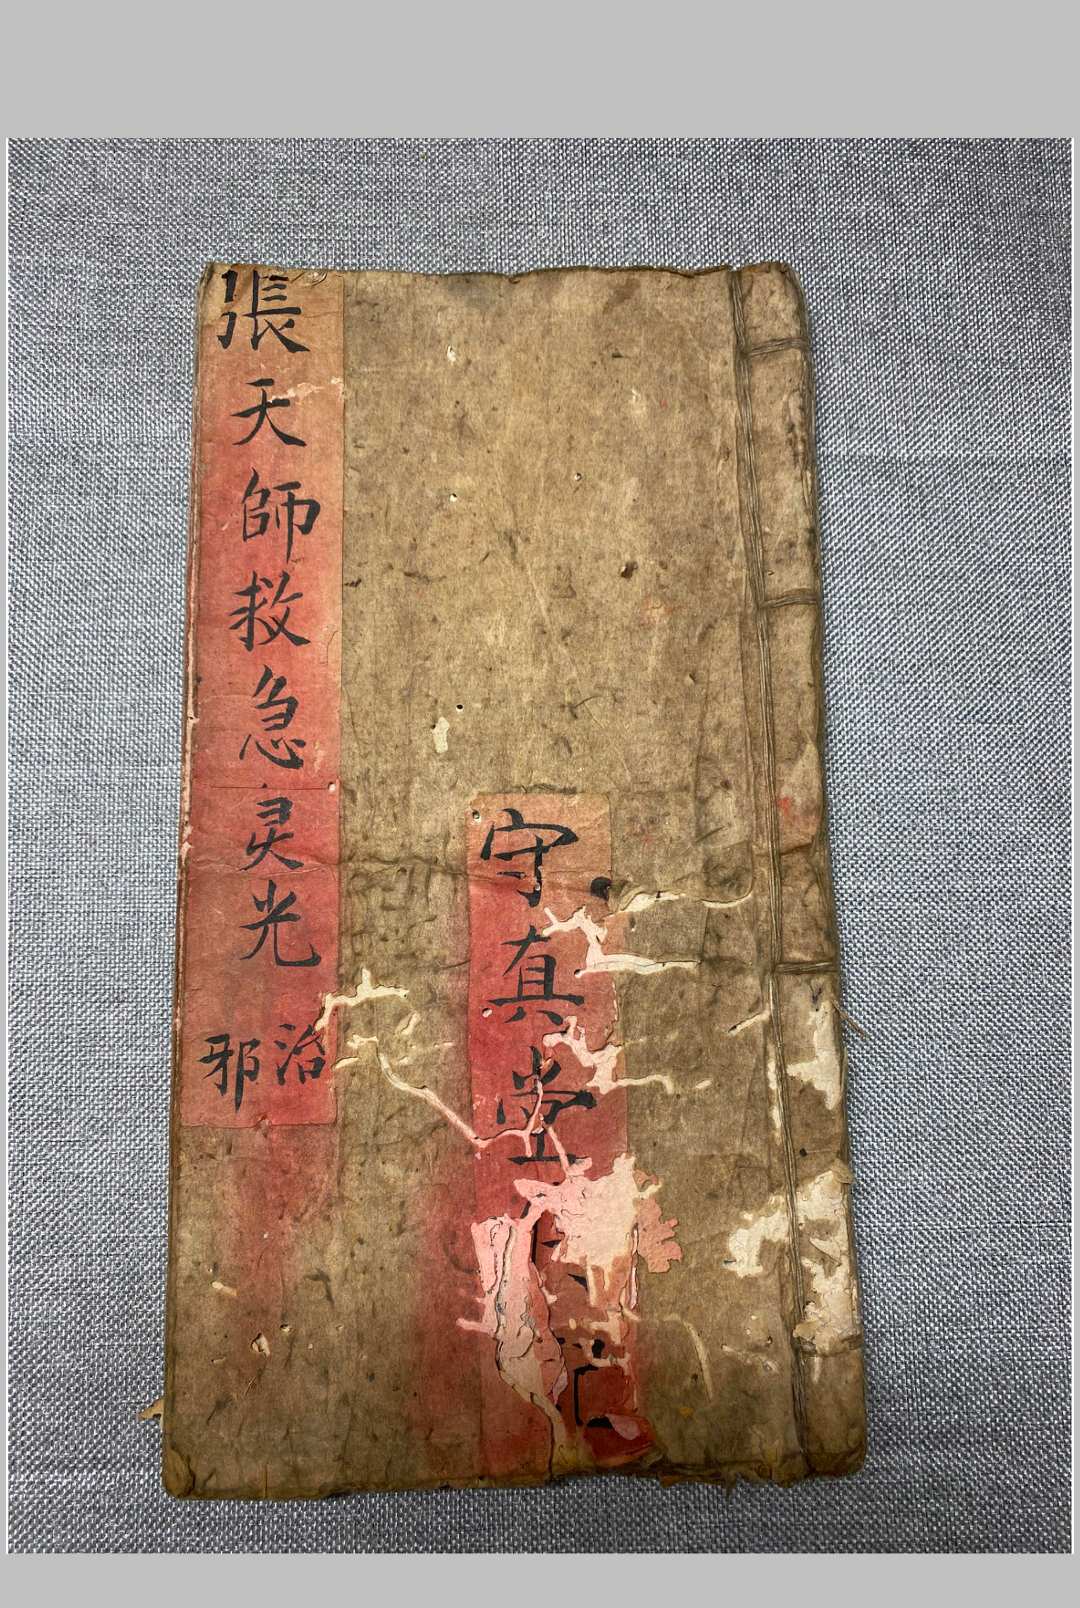 張天師救急灵光
治
邪
守真堂
記